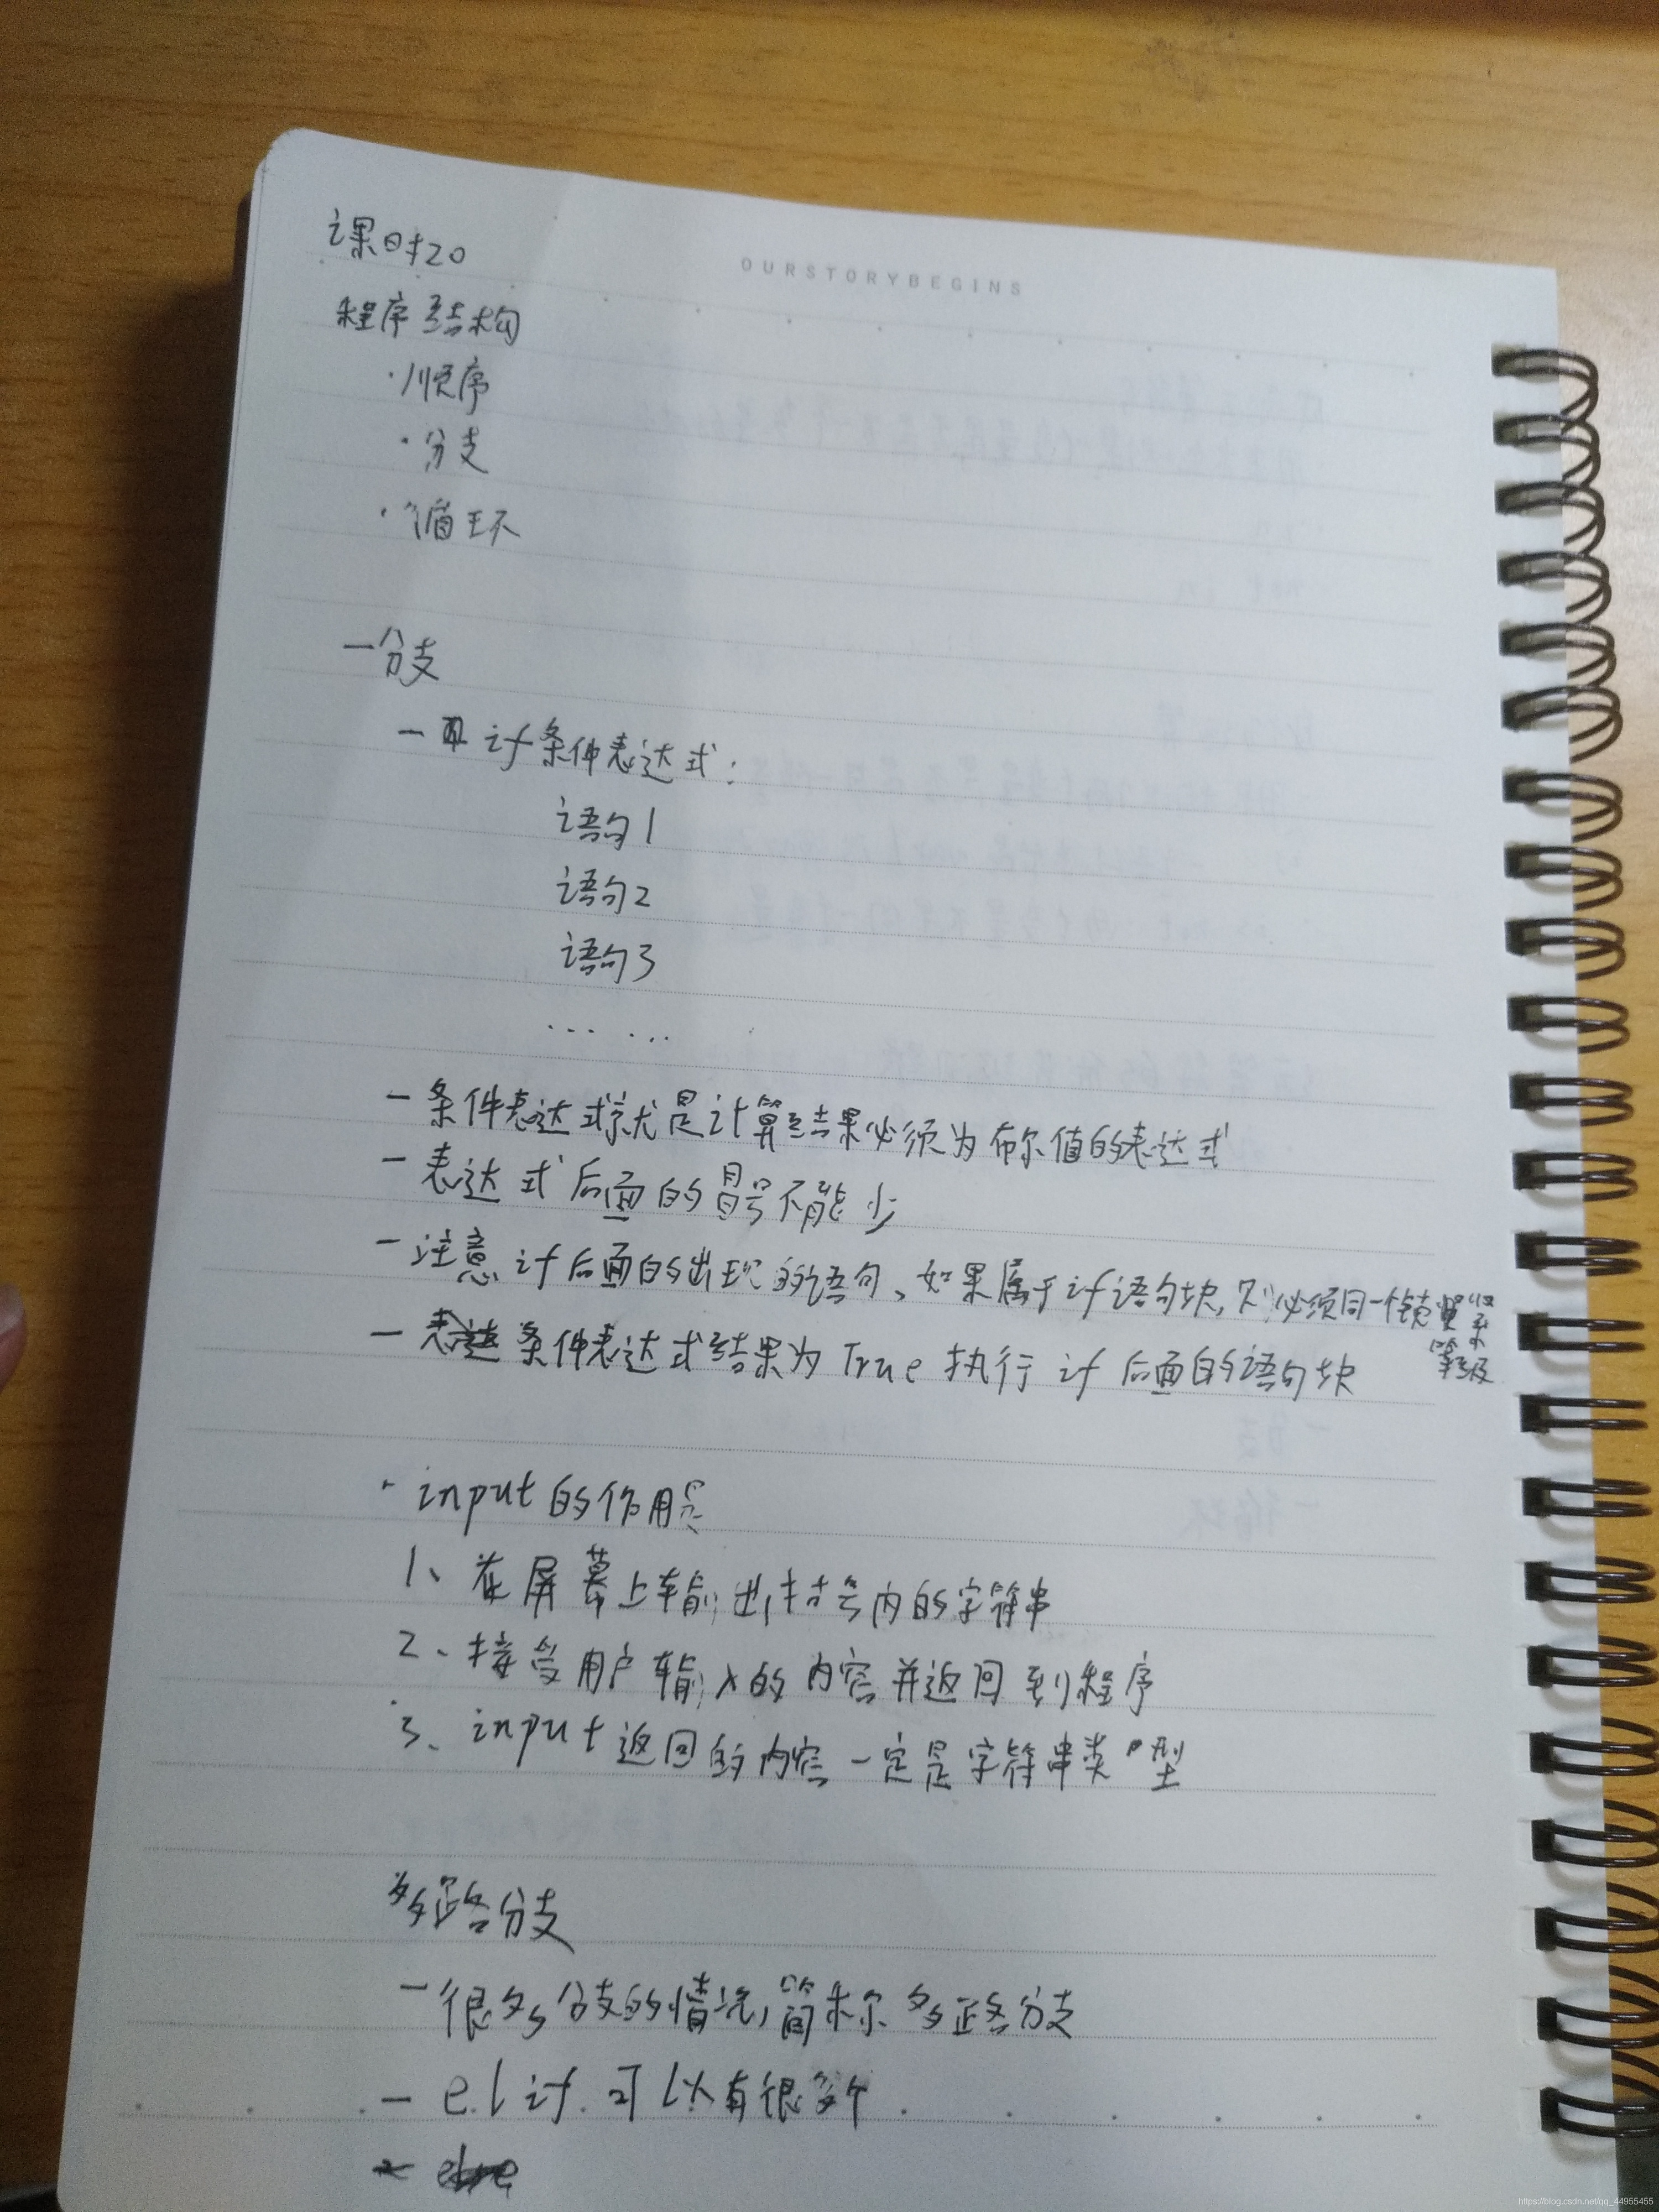 课时20
OURSTORYBEGINS
程序结构
·顺序
·分支
·循环
一分支
一 if条件表达式:
语句1
语句2
语句3
... ...
一条件表达式就是计算结果必须为布尔值的表达式
一表达式后面的冒号不能少
一注意if后面的出现的语句、如果属于if语句块,则必须同一个缩
等级
一 条件表达式结果为True执行if后面的语句块
·input的作用是
1、在屏幕上输出括号内的字符串
2、接受用户输入的内容并返回到程序
3、input返回的内容一定是字符串类型
多路分支
一很多分支的情况,简称多路分支
一elif可以有很多个
else
https://blog.csdn.net/qq_44955455